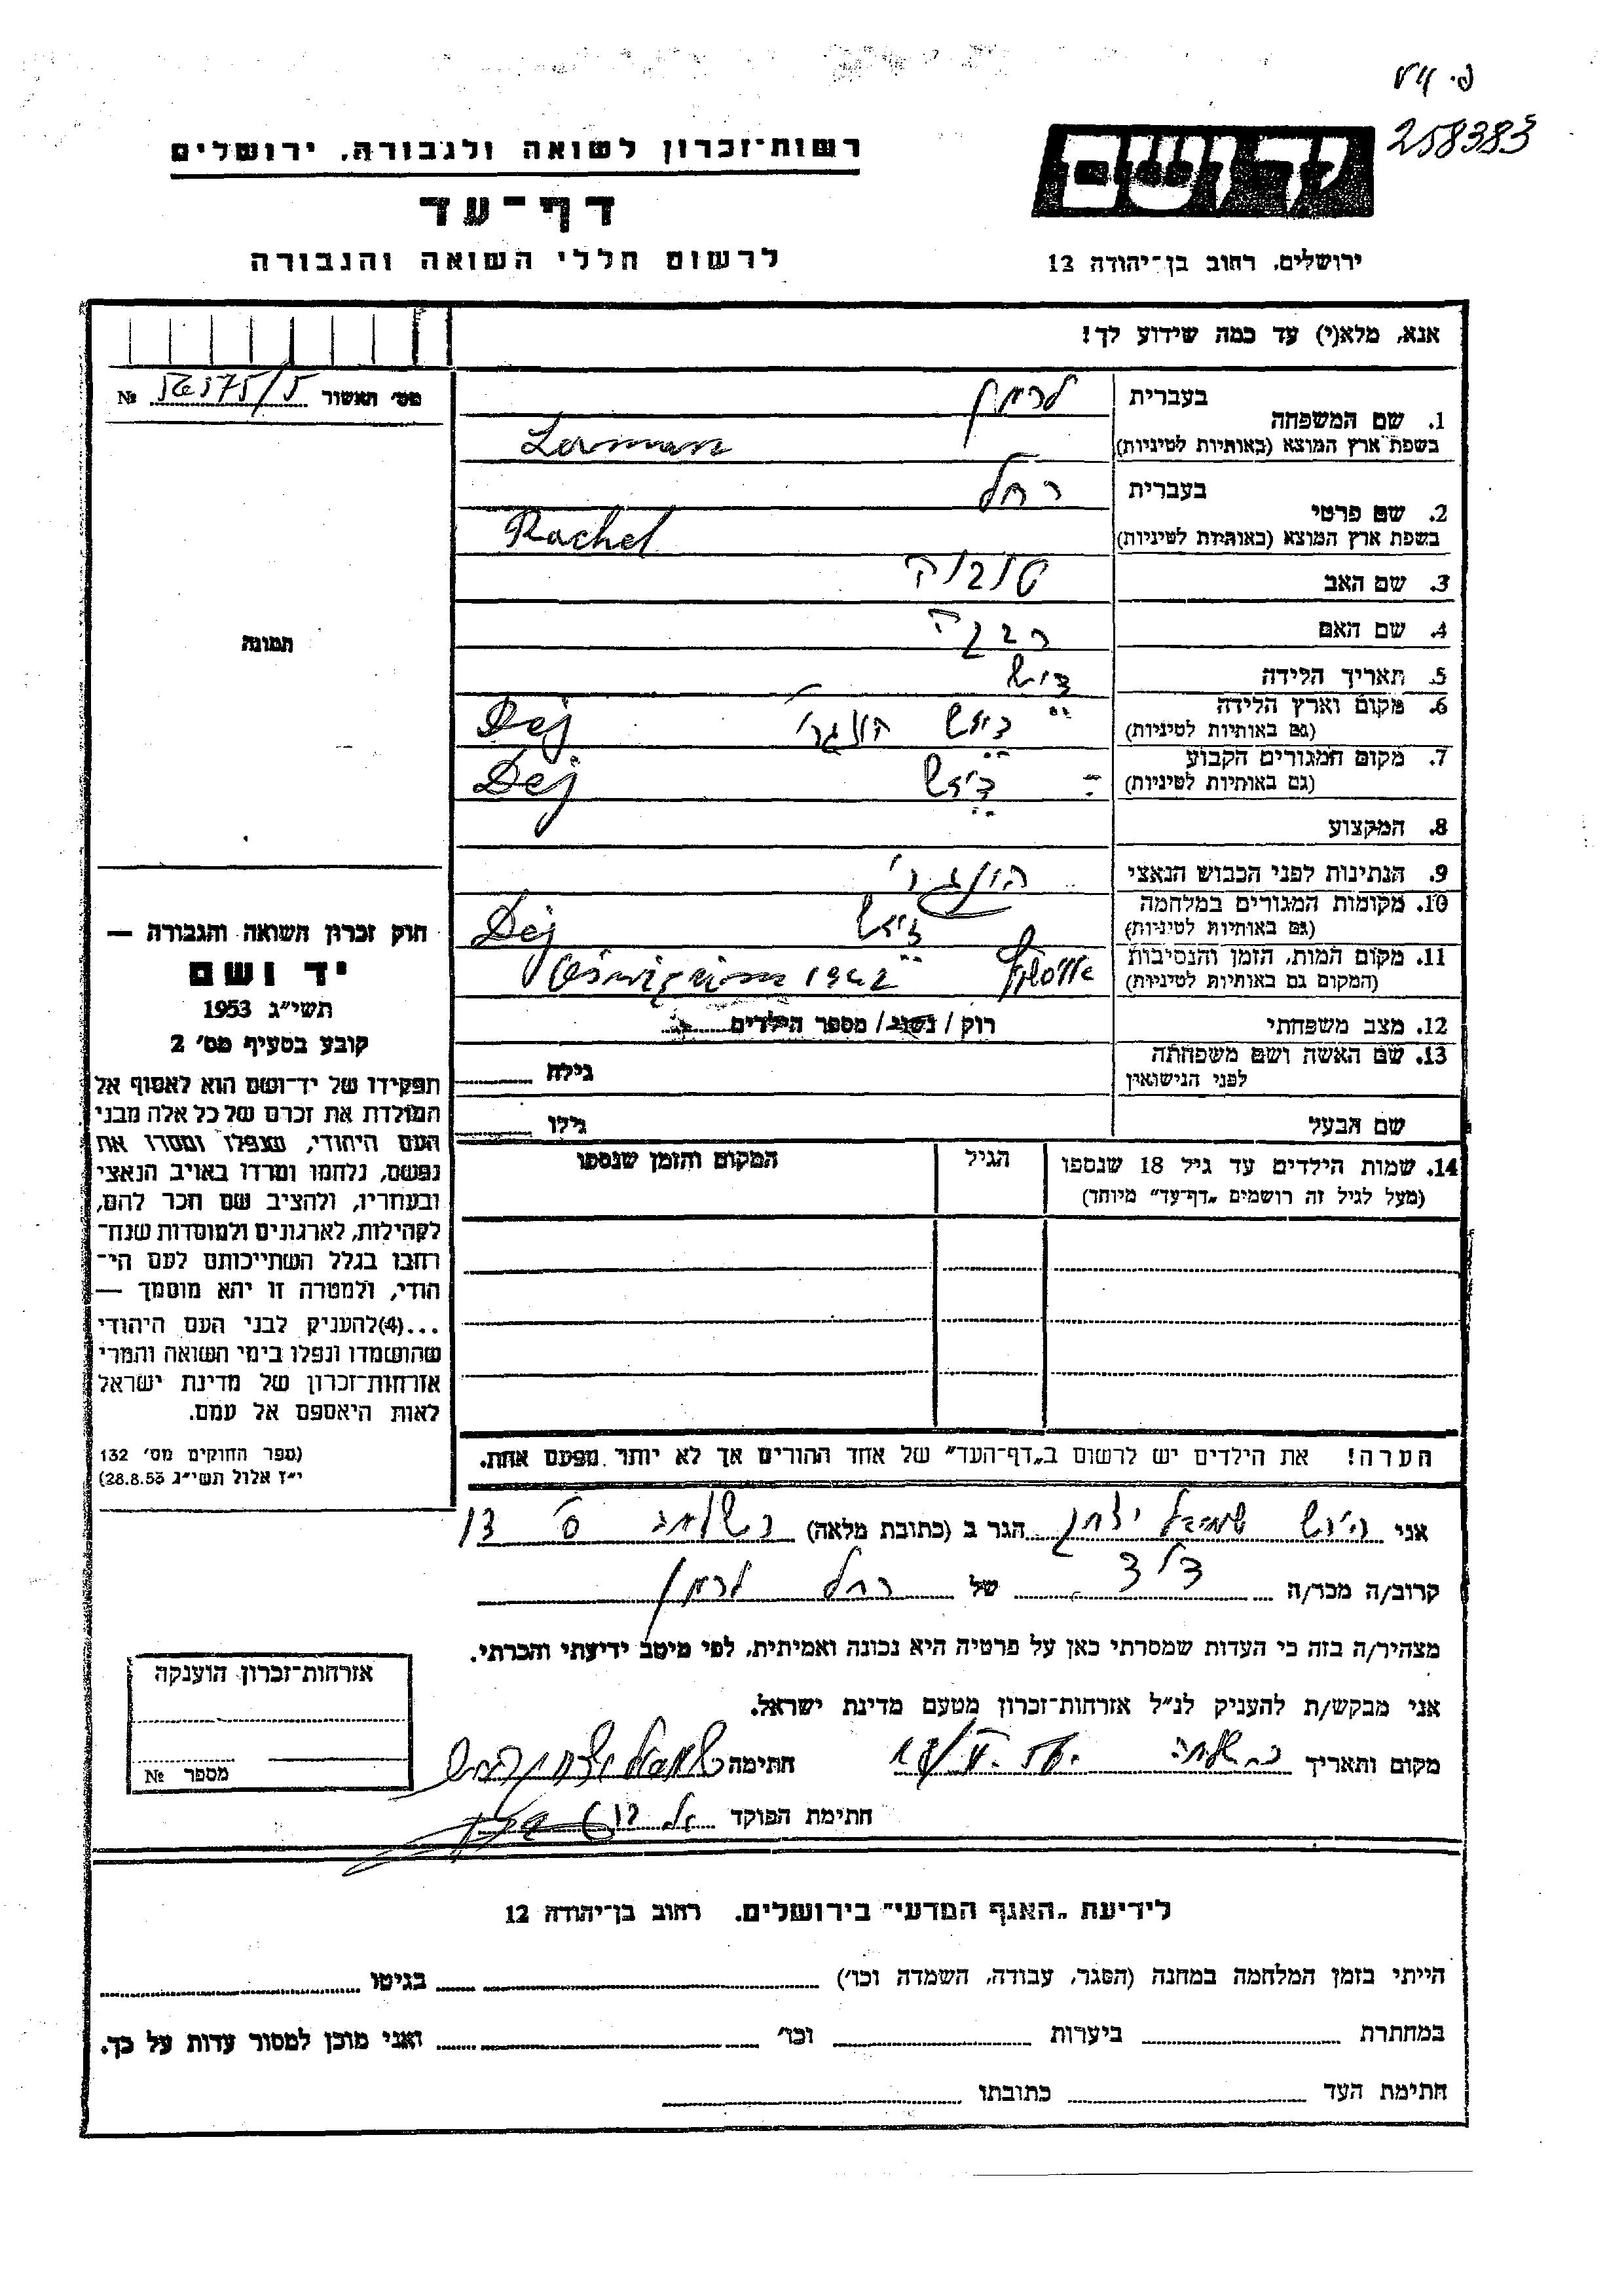 258383
רשות־זכרון לשואה ולגבורה. ירושלים
יד ושם
דף־עד
לרשום חללי השואה והגבורה
ירושלים. רחוב בן־יהודה 12
אנא, מלא(י) עד כמה שידוע לך!
מס׳ האשור №
1. שם המשפחה בעברית לרמן
בשפת ארץ המוצא (באותיות לטיניות) Lerman
2. שם פרטי בעברית רחל
בשפת ארץ המוצא (באותיות לטיניות) Rachel
3. שם האב טוביה
4. שם האם רבקה
תמונה
5. תאריך הלידה
6. מקום וארץ הלידה (גם באותיות לטיניות) דיעש Dej
7. מקום המגורים הקבוע (גם באותיות לטיניות) דיעש Dej
8. המקצוע
9. הנתינות לפני הכבוש הנאצי
10. מקומות המגורים במלחמה (גם באותיות לטיניות) דיעש Dej
11. מקום המות, הזמן והנסיבות (המקום גם באותיות לטיניות) 1942
12. מצב משפחתי רוק / נשוי / מספר הילדים
13. שם האשה ושם משפחתה לפני הנישואין גילה
שם הבעל גילו
14. שמות הילדים עד גיל 18 שנספו
(מעל לגיל זה רושמים „דף־עד״ מיוחד)
הגיל
המקום והזמן שנספו
הערה! את הילדים יש לרשום ב„דף־העד״ של אחד ההורים אך לא יותר מפעם אחת.
חוק זכרון השואה והגבורה —
יד ושם
תשי״ג 1953
קובע בסעיף מס׳ 2
תפקידו של יד־ושם הוא לאסוף אל
המולדת את זכרם של כל אלה מבני
העם היהודי, שנפלו ומסרו את
נפשם, נלחמו ומרדו באויב הנאצי
ובעוזריו, ולהציב שם וזכר להם,
לקהילות, לארגונים ולמוסדות שנח־
רחבו בגלל השתייכותם לעם הי־
הודי, ולמטרה זו יהא מוסמך —
...(4)להעניק לבני העם היהודי
שהושמדו ונפלו בימי השואה והמרי
אזרחות־זכרון של מדינת ישראל
לאות היאספם אל עמם.
(ספר החוקים מס׳ 132
י״ז אלול תשי״ג 28.8.53)
אני הירש שמואל יצחק הגר ב (כתובת מלאה)
קרוב/ה מכר/ה דוד של רחל לרמן
מצהיר/ה בזה כי העדות שמסרתי כאן על פרטיה היא נכונה ואמיתית, לפי מיטב ידיעתי והכרתי.
אני מבקש/ת להעניק לנ״ל אזרחות־זכרון מטעם מדינת ישראל.
מקום ותאריך חתימה שמואל יצחק הירש
חתימת הפוקד
אזרחות־זכרון הוענקה
מספר №
לידיעת „האגף המדעי״ בירושלים. רחוב בן־יהודה 12
הייתי בזמן המלחמה במחנה (הסגר, עבודה, השמדה וכו׳) בגיטו
במחתרת ביערות וכו׳ ואני מוכן למסור עדות על כך.
חתימת העד כתובתו